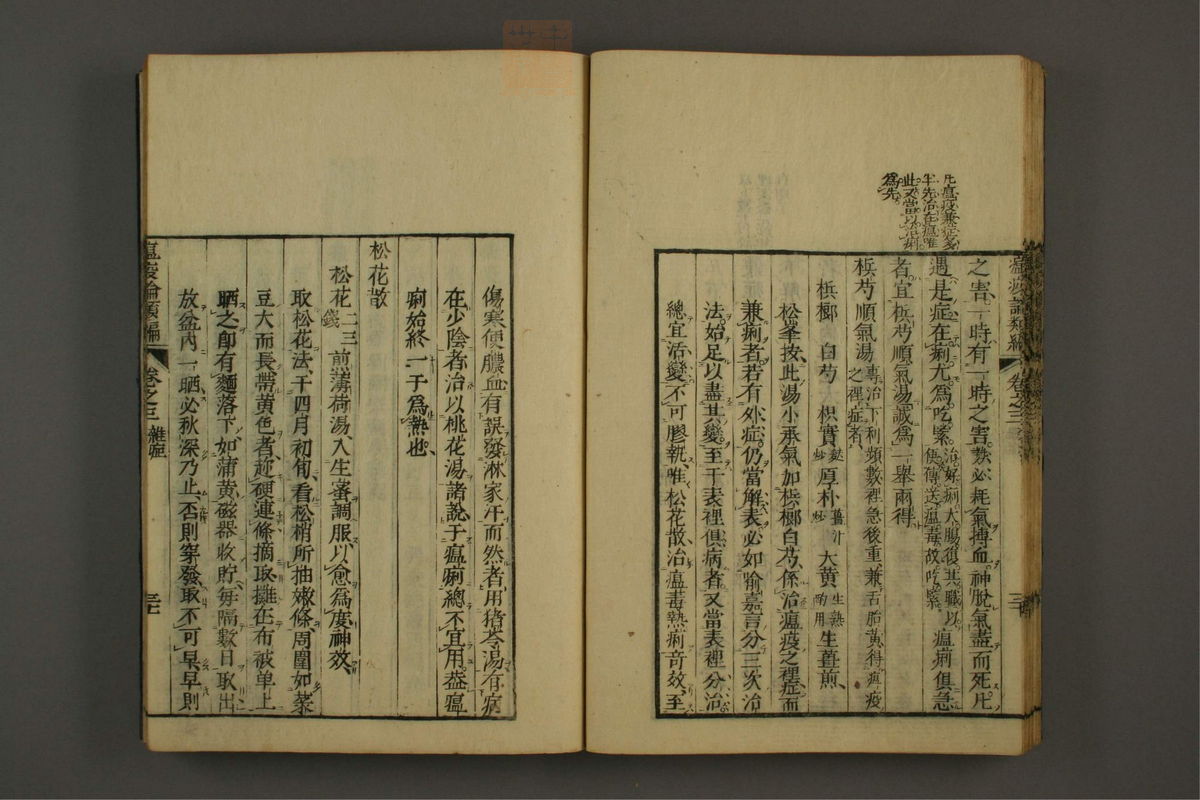 凡瘟疫兼症多
半先治在瘟唯
此又當以治痢
爲先
瘟疫論類編 卷之三
之害一時有一時之害數必耗氣搏血神脫氣盡而死凡
遇是症在痢尤爲吃緊治好痢大腸復其職以便傳送瘟毒故吃緊瘟痢俱急
者宜檳芍順氣湯誠爲一舉兩得
檳芍順氣湯專治下利頻數裡急後重兼舌胎黃得疫之裡症者
檳榔 白芍 枳實麩炒厚朴薑汁炒大黃生熟酌用生薑煎
松峯按此湯小承氣加檳榔白芍係治瘟疫之裡症而
兼痢者若有外症仍當解表必如喻嘉言分三次治
法始足以盡其變至于表裡俱病者又當表裡分治
總宜活變不可膠執唯松花散治瘟毒熱痢奇效至
傷寒便膿血有誤發淋家汗而然者用猪苓湯有病
在少陰者治以桃花湯諸說于瘟痢總不宜用葢瘟
痢始終一于爲熱也
松花散
松花二三錢 前薄荷湯入生蜜調服以愈爲度神效
取松花法于四月初旬看松梢所抽嫩條周圍如菜
豆大而長帶黃色者趂硬連條摘取攤在布被单上
晒之卽有麵落下如蒲黃磁器收貯每隔數日取出
放盆內一晒必秋深乃止否則穿發取不可早早則
瘟疫論類編 卷之三 雜症